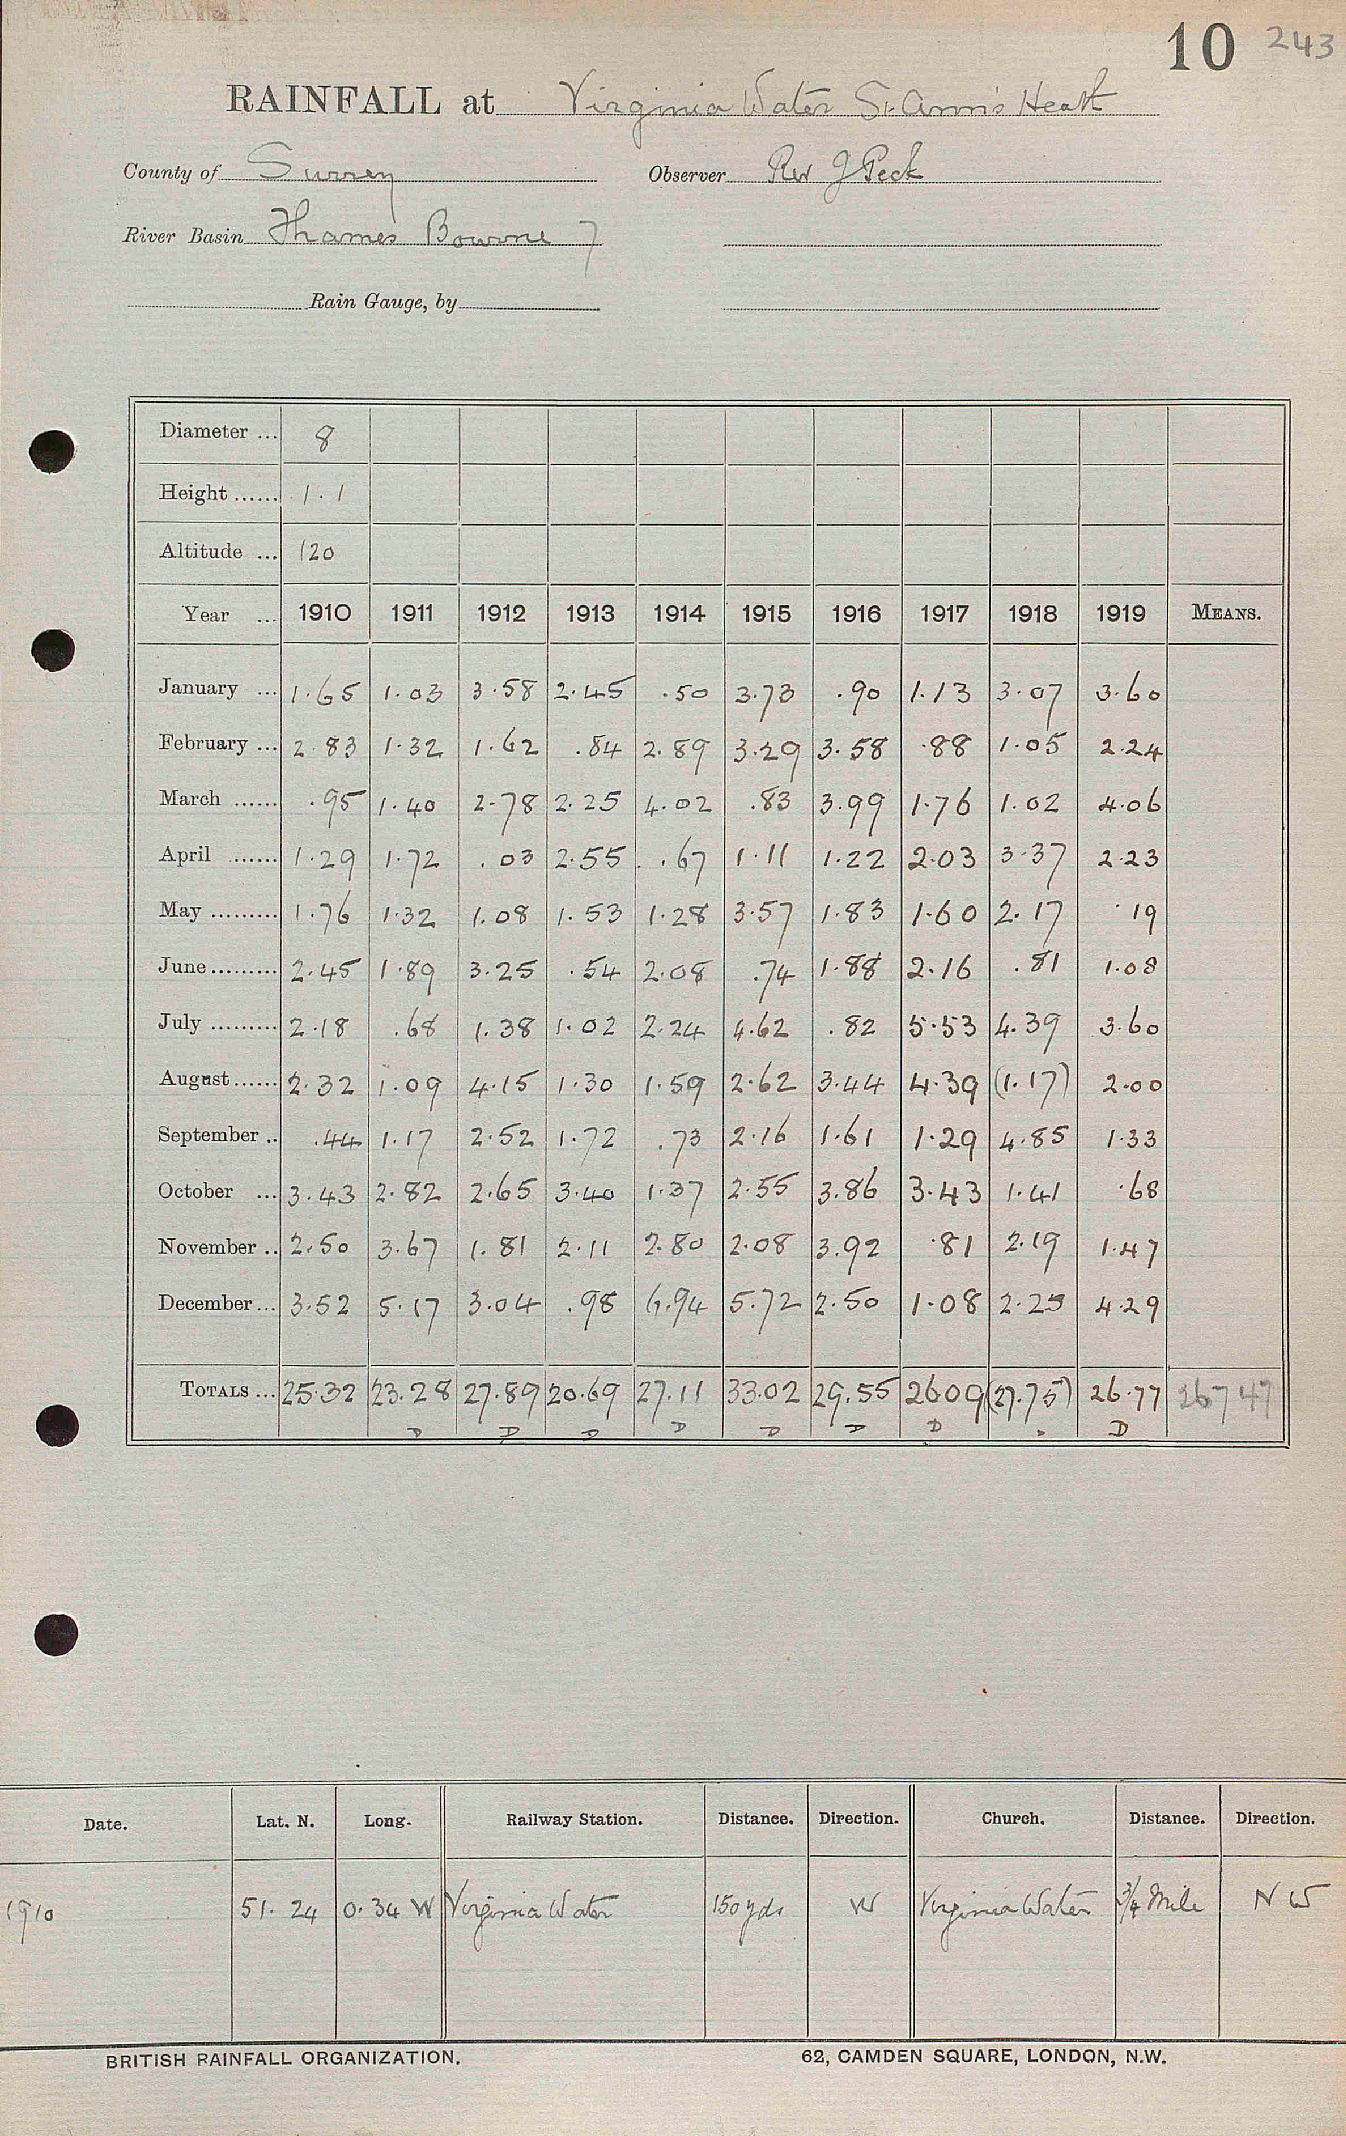 10 243
RAINFALL at Virginia Water St. Ann's Heath
County of Surrey Observer Rev J Peck
River Basin Thames Bourne 7
Rain Gauge, by
Diameter ... 8
Height ...... 1.1
Altitude ... 120
Year ... 1910 1911 1912 1913 1914 1915 1916 1917 1918 1919 MEANS.
January ... 1.65 1.03 3.58 2.45 .50 3.73 .90 1.13 3.07 3.60
February ... 2.83 1.32 1.62 .84 2.89 3.29 3.58 .88 1.05 2.24
March ...... .95 1.40 2.78 2.25 4.02 .83 3.99 1.76 1.02 4.06
April ...... 1.29 1.72 .03 2.55 .67 1.11 1.22 2.03 3.37 2.23
May ......... 1.76 1.32 1.08 1.53 1.28 3.57 1.83 1.60 2.17 .19
June ......... 2.45 1.89 3.25 .54 2.08 .74 1.88 2.16 .81 1.08
July ......... 2.18 .68 1.38 1.02 2.24 4.62 .82 5.53 4.39 3.60
August ...... 2.32 1.09 4.15 1.30 1.59 2.62 3.44 4.39 (1.17) 2.00
September .. .44 1.17 2.52 1.72 .73 2.16 1.61 1.29 4.85 1.33
October ... 3.43 2.82 2.65 3.40 1.37 2.55 3.86 3.43 1.41 .68
November .. 2.50 3.67 1.81 2.11 2.80 2.08 3.92 .81 2.19 1.47
December ... 3.52 5.17 3.04 .98 6.94 5.72 2.50 1.08 2.25 4.29
TOTALS ... 25.32 23.28 27.89 20.69 27.11 33.02 29.55 26.09 (27.75) 26.77 267 47
D D D D D D D D
Date. Lat. N. Long. Railway Station. Distance. Direction. Church. Distance. Direction.
1910 51. 24 0. 34 W Virginia Water 150 yds W Virginia Water 3/4 Mile N W
BRITISH RAINFALL ORGANIZATION. 62, CAMDEN SQUARE, LONDON, N.W.